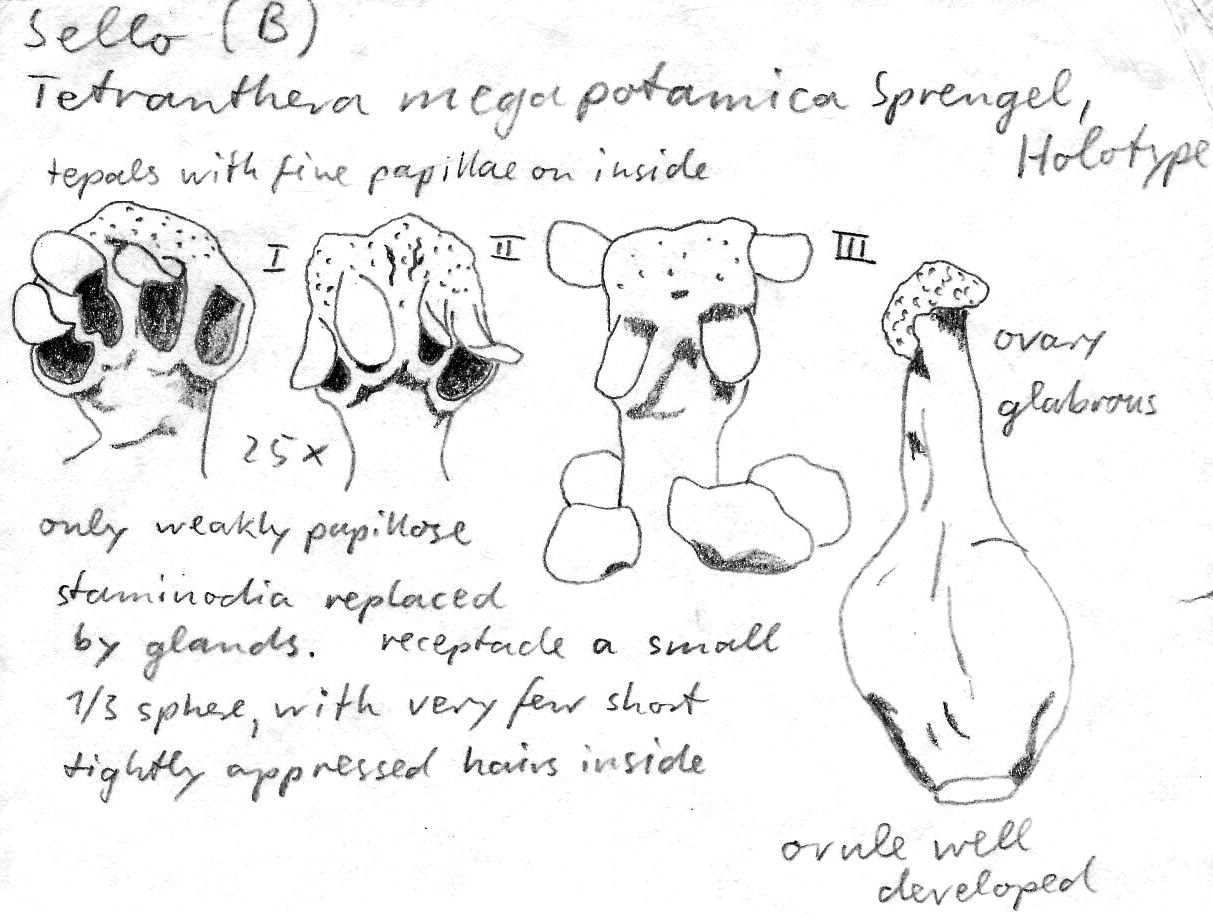 Sello (B)
Tetranthera megapotamica Sprengel,
Holotype
tepals with fine papillae on inside
I
II
III
25 x
ovary
glabrous
only weakly papillose
staminodia replaced
by glands. receptacle a small
1/3 sphere, with very few short
tightly appressed hairs inside
ovule well
developed